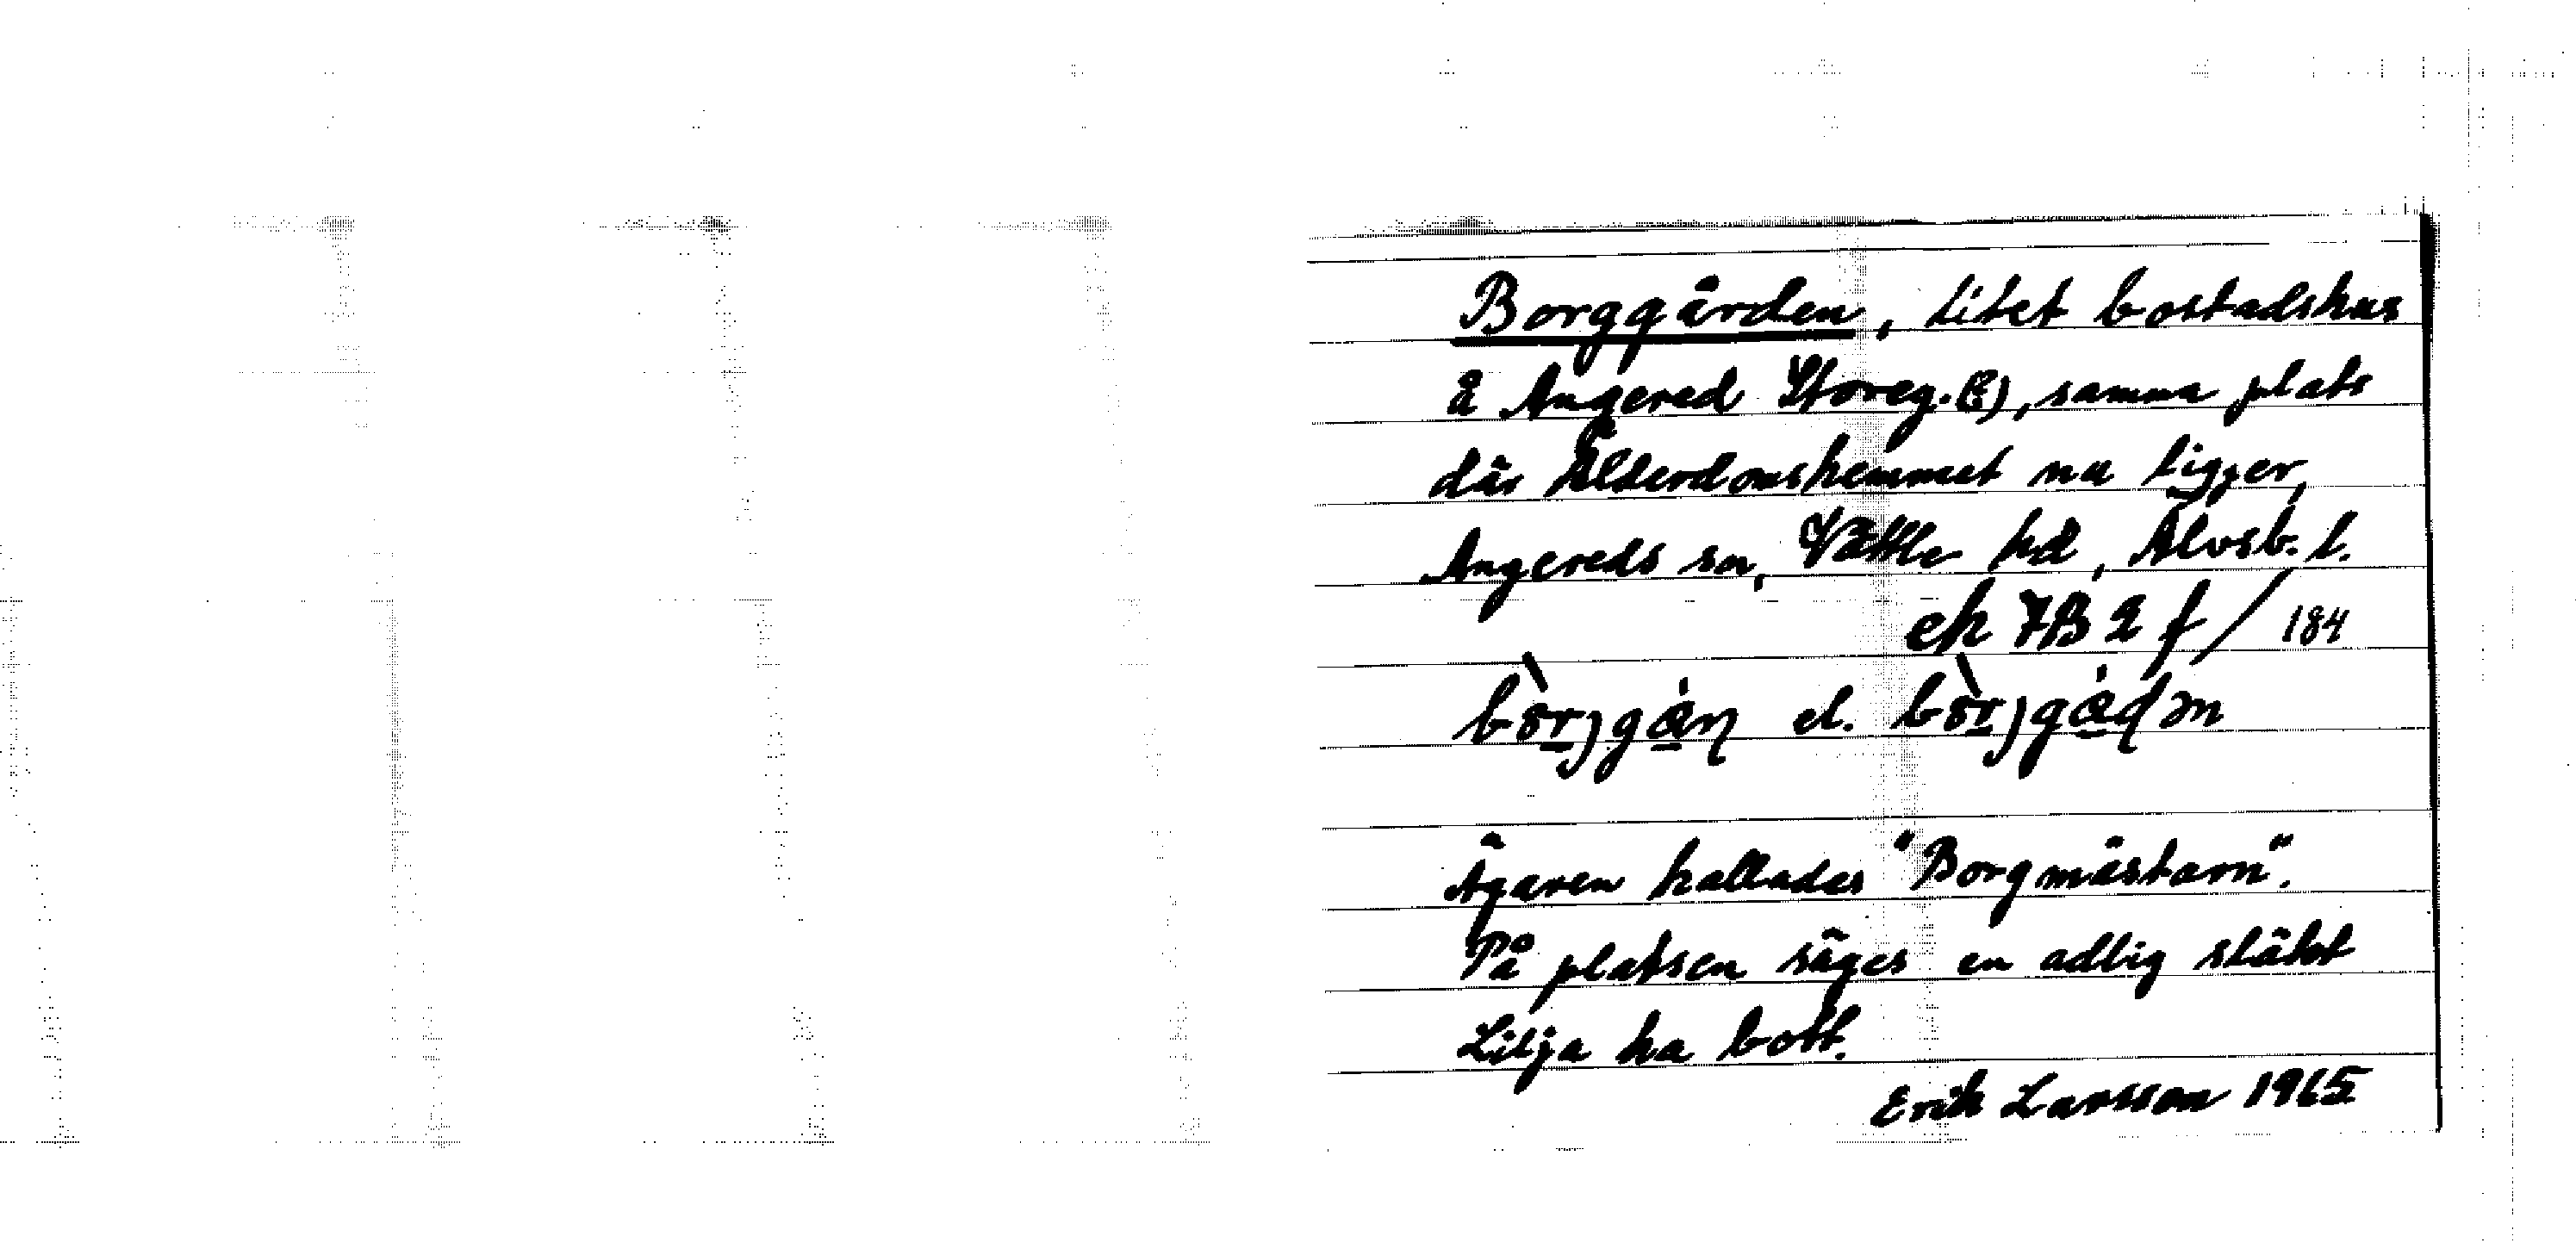 Borggården, litet bostadshus
å Angered Storeg. (E), samma plats
där Ålderdomshemmet nu ligger,
Angereds sn, Vättle hd, Älvsb. l.
ek 7B 2 f / 184
el.
Ägaren kallades "Borgmästarn".
På platsen säges en adlig släkt
Lilja ha bott.
Erik Larsson 1965